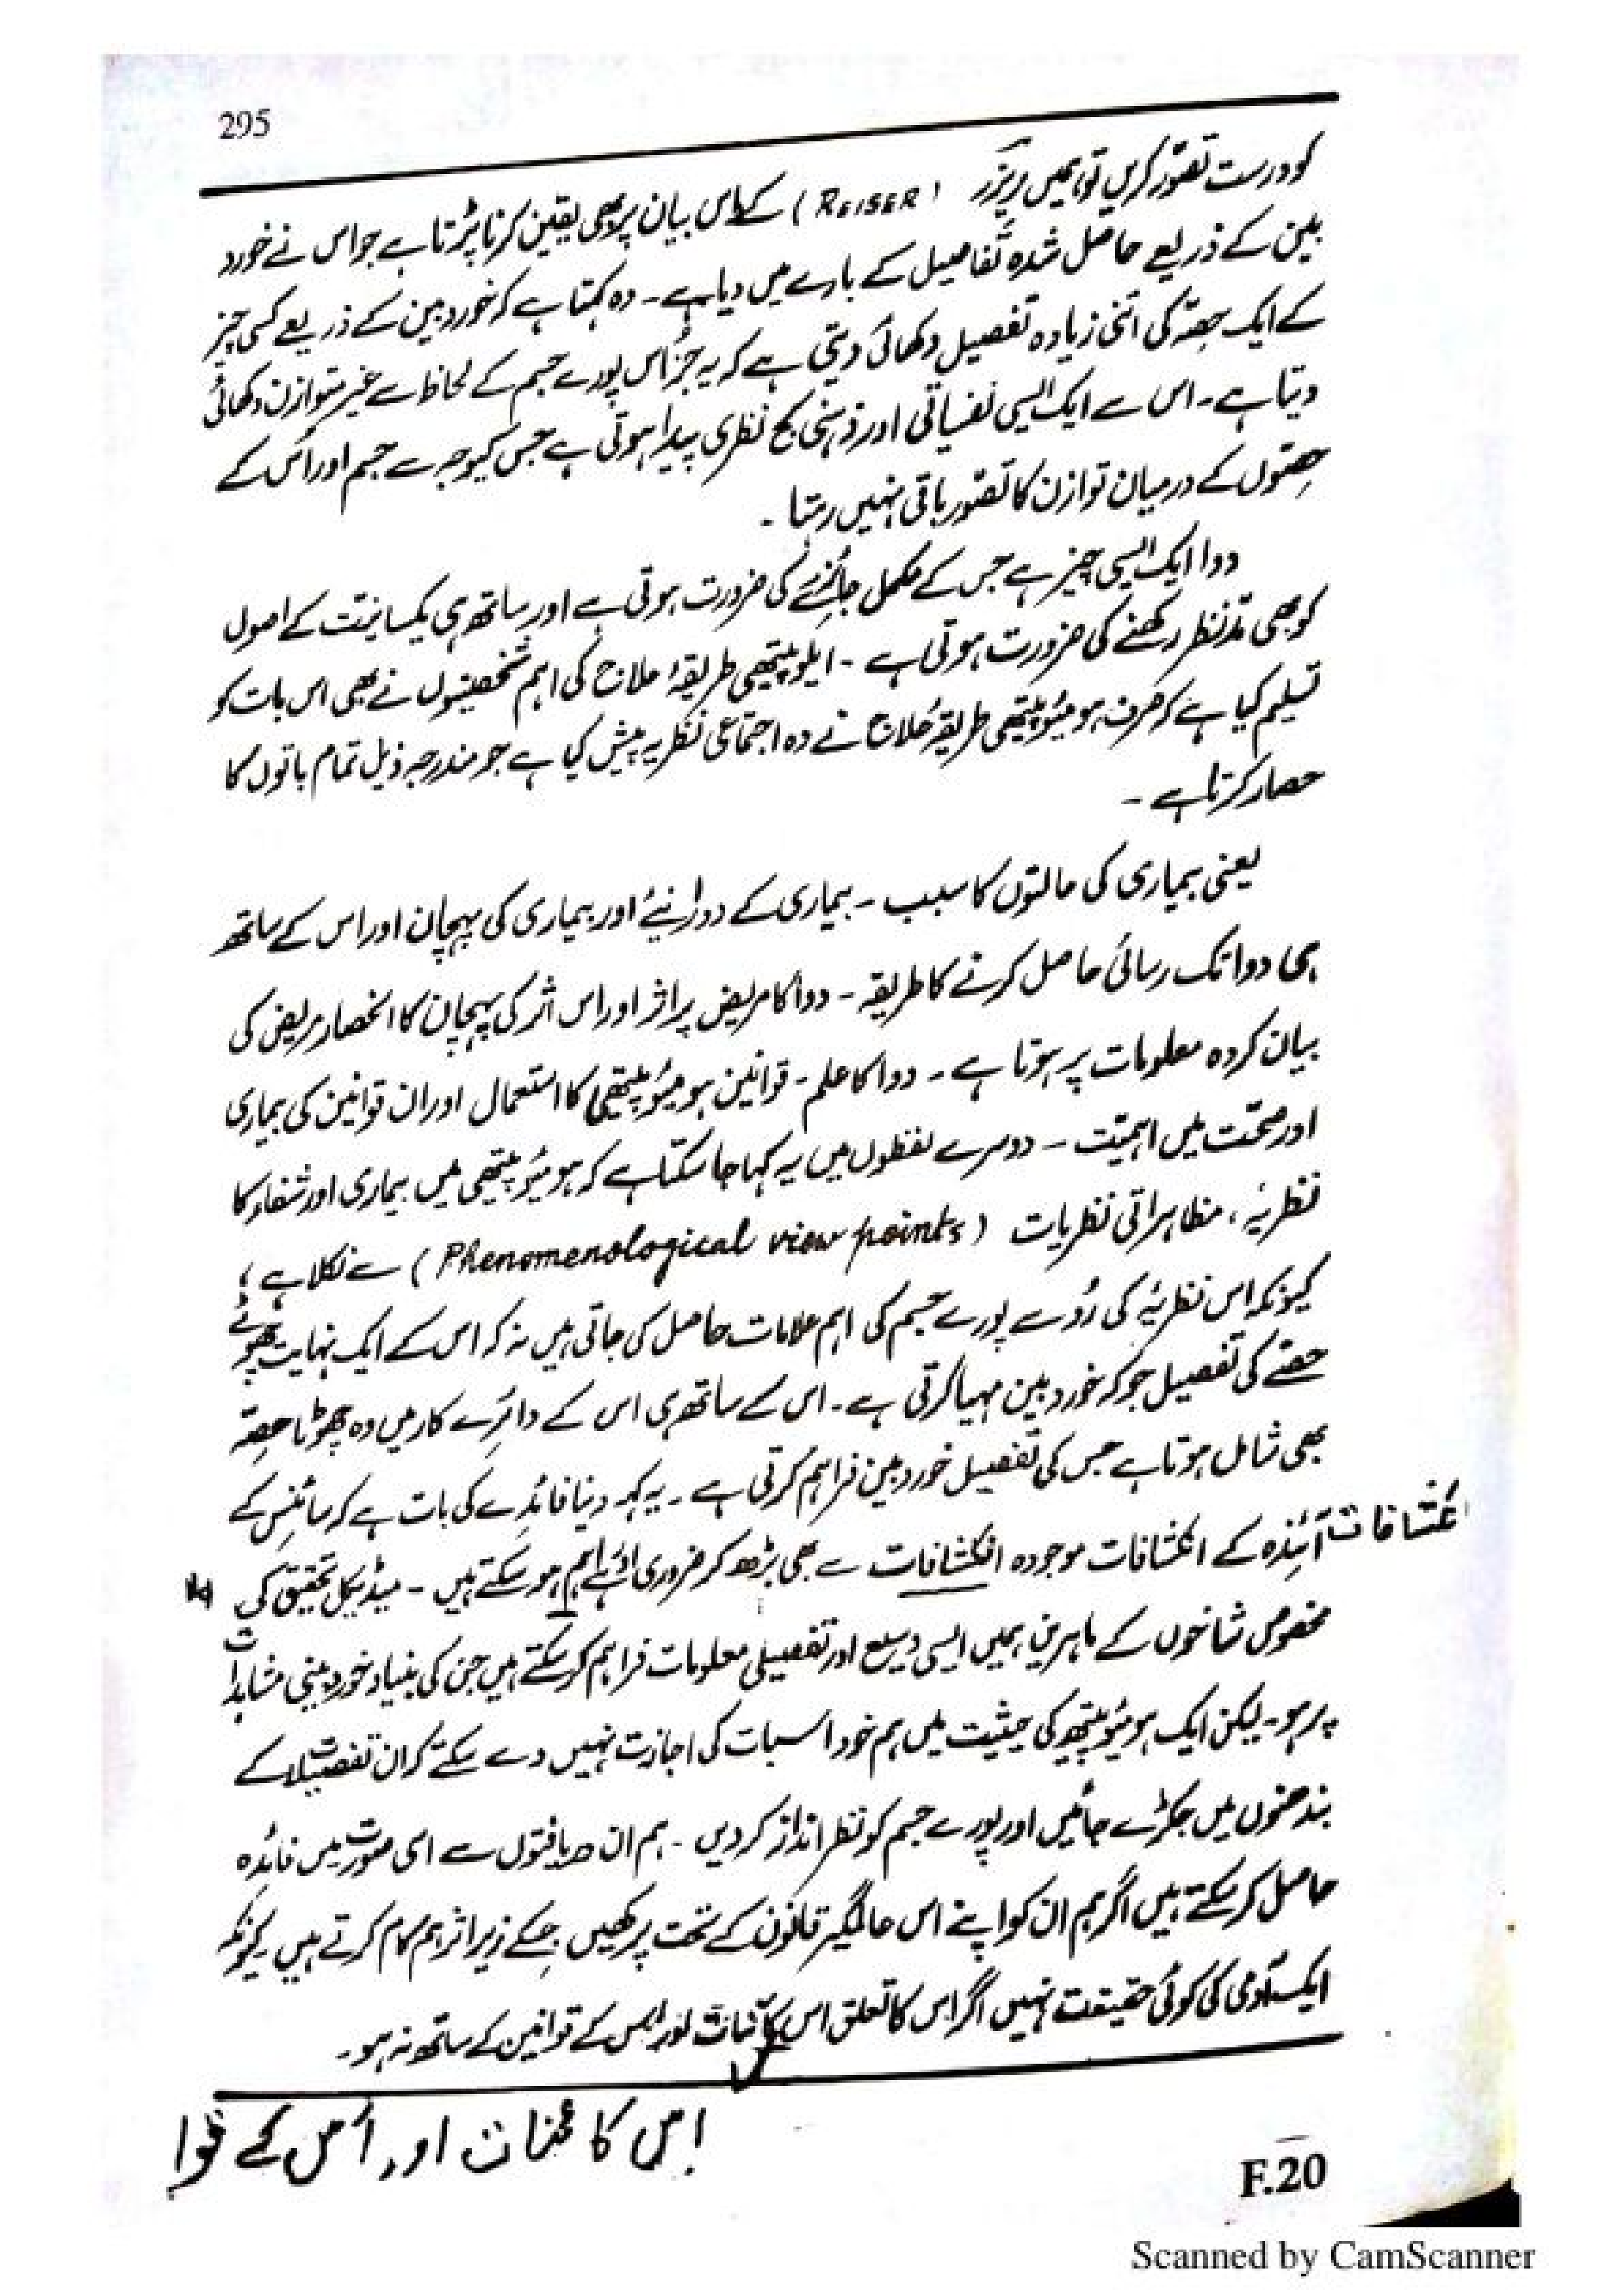 295
کو درست تصوّر کریں تو ہمیں ریزر (REISER) کے اس بیان پر بھی یقین کرنا پڑتا ہے جو اس نے خورد
بین کے ذریعے حاصل شدہ تفاصیل کے بارے میں دیا ہے۔ وہ کہتا ہے کہ خوردبین کے ذریعے کسی چیز
کے ایک حصّہ کی اتنی زیادہ تفصیل دکھائی دیتی ہے کہ یہ جزُ اس پورے جسم کے لحاظ سے غیر متوازن دکھائی
دیتا ہے۔ اس سے ایک ایسی نفسیاتی اور ذہنی کج نظری پیدا ہوتی ہے جس کیوجہ سے جسم اور اُس کے
حصّوں کے درمیان توازن کا تصّور باقی نہیں رہتا ۔
دوا ایک ایسی چیز ہے جس کے مکمل جائزے کی ضرورت ہوتی ہے اور ساتھ ہی یکسانیّت کے اصول
کو بھی مّدِنظر رکھنے کی ضرورت ہوتی ہے ۔ ایلوپیتھی طریقۂ علاج کی اہم شخصیتوں نے بھی اس بات کو
تسلیم کیا ہے کہ صرف ہومیئوپیتھی طریقۂ علاج نے وہ اجتماعی نظریہ پیش کیا ہے جو مندرجہ ذیل تمام باتوں کا
حصار کرتا ہے ۔
یعنی بیماری کی حالتوں کا سبب ۔ بیماری کے دورانیئے اور بیماری کی پہچان اور اس کے ساتھ
ہی دوا تک رسائی حاصل کرنے کا طریقہ ۔ دوا کا مریض پر اثر اور اس اثر کی پہچان کا انحصار مریض کی
بیان کردہ معلومات پر ہوتا ہے ۔ دوا کا علم ۔ قوانین ہومیئوپیتھی کا استعمال اور ان قوانین کی بیماری
اور صحّت میں اہمیّت ۔ دوسرے لفظوں میں یہ کہا جا سکتا ہے کہ ہومیئوپیتھی میں بیماری اور شفاء کا
نظریۂ ، مظاہراتی نظریات (Phenomenological view points) سے نکلا ہے ؛
کیونکہ اس نظریۂ کی رُو سے پورے جسم کی اہم علامات حاصل کی جاتی ہیں نہ کہ اس کے ایک نہایت چھوٹے
حصّے کی تفصیل جو کہ خوردبین مہیا کرتی ہے ۔ اس کے ساتھ ہی اس کے دائرے کار میں وہ چھوٹا حصّہ
بھی شامل ہوتا ہے جس کی تفصیل خوردبین فراہم کرتی ہے ۔ یہ کہہ دینا فائدے کی بات ہے کہ سائنس کے
آئندہ کے انکشافات موجودہ انکشافات سے بھی بڑھ کر ضروری اور اہم ہو سکتے ہیں ۔ میڈیکل تحقیق کی
مخصوص شاخوں کے ماہرین ہمیں ایسی وسیع اور تفصیلی معلومات فراہم کر سکتے ہیں جن کی بنیاد خوردبینی مشاہدات
پر ہو۔ لیکن ایک ہومیئوپیتھ کی حیثیت میں ہم خود اسبات کی اجازت نہیں دے سکتے کہ ان تفصیلات کے
بندھنوں میں جکڑے جائیں اور پورے جسم کو نظر انداز کر دیں ۔ ہم ان دریافتوں سے اسی صورت میں فائدہ
حاصل کر سکتے ہیں اگر ہم ان کو اپنے اس عالمگیر قانون کے تحت پرکھیں جسکے زیر اثر ہم کام کرتے ہیں کیونکہ
ایک آدمی کی کوئی حقیقت نہیں اگر اس کا تعلق اس کائنات اور اس کے قوانین کے ساتھ نہ ہو ۔
اِس کائنات اور اُس کے قوا
F.20
Scanned by CamScanner